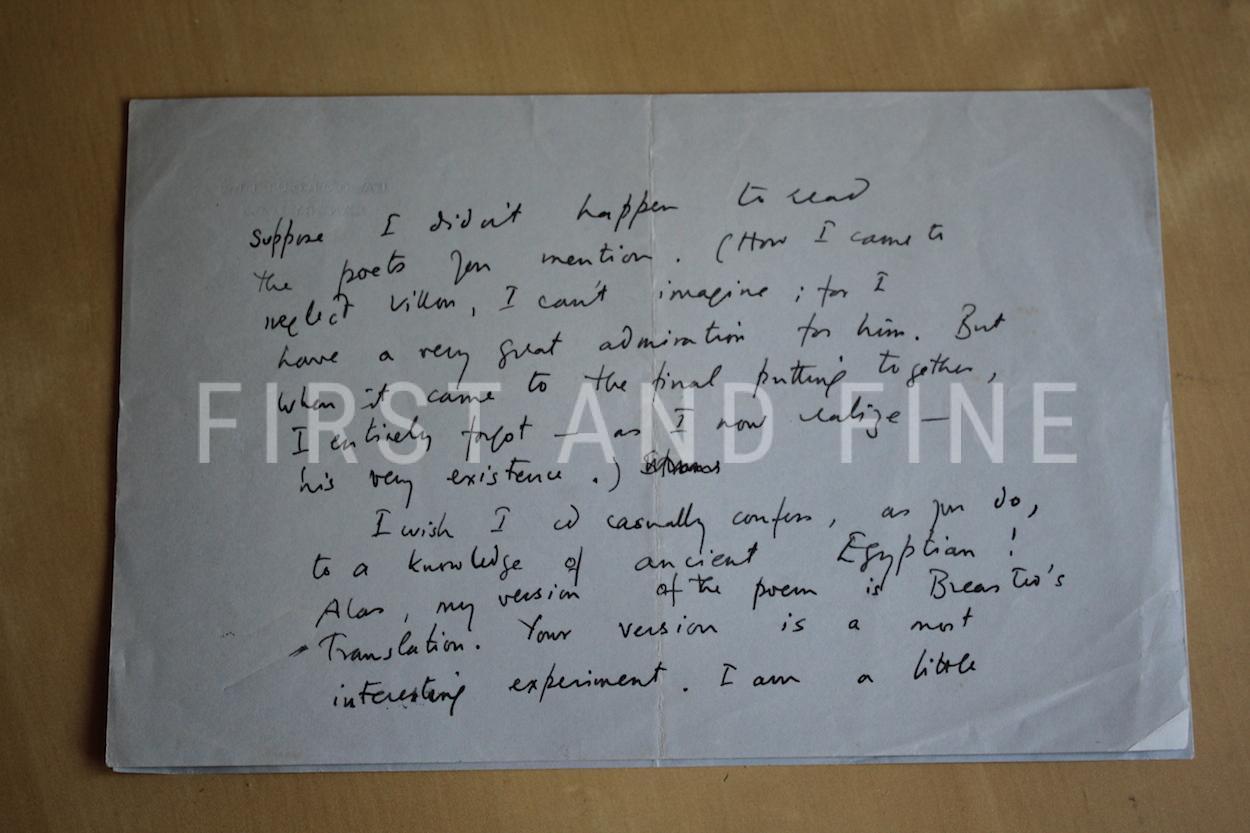 suppose I didn't happen to read
the poets you mention. (How I came to
neglect Villon, I can't imagine; for I
have a very great admiration for him. But
when it came to the final putting together,
I entirely forgot — as I now realize —
his very existence.)
I wish I cd casually confess, as you do,
to a knowledge of ancient Egyptian!
Alas, my version of the poem is Breasted's
Translation. Your version is a most
interesting experiment. I am a little
FIRST AND FINE